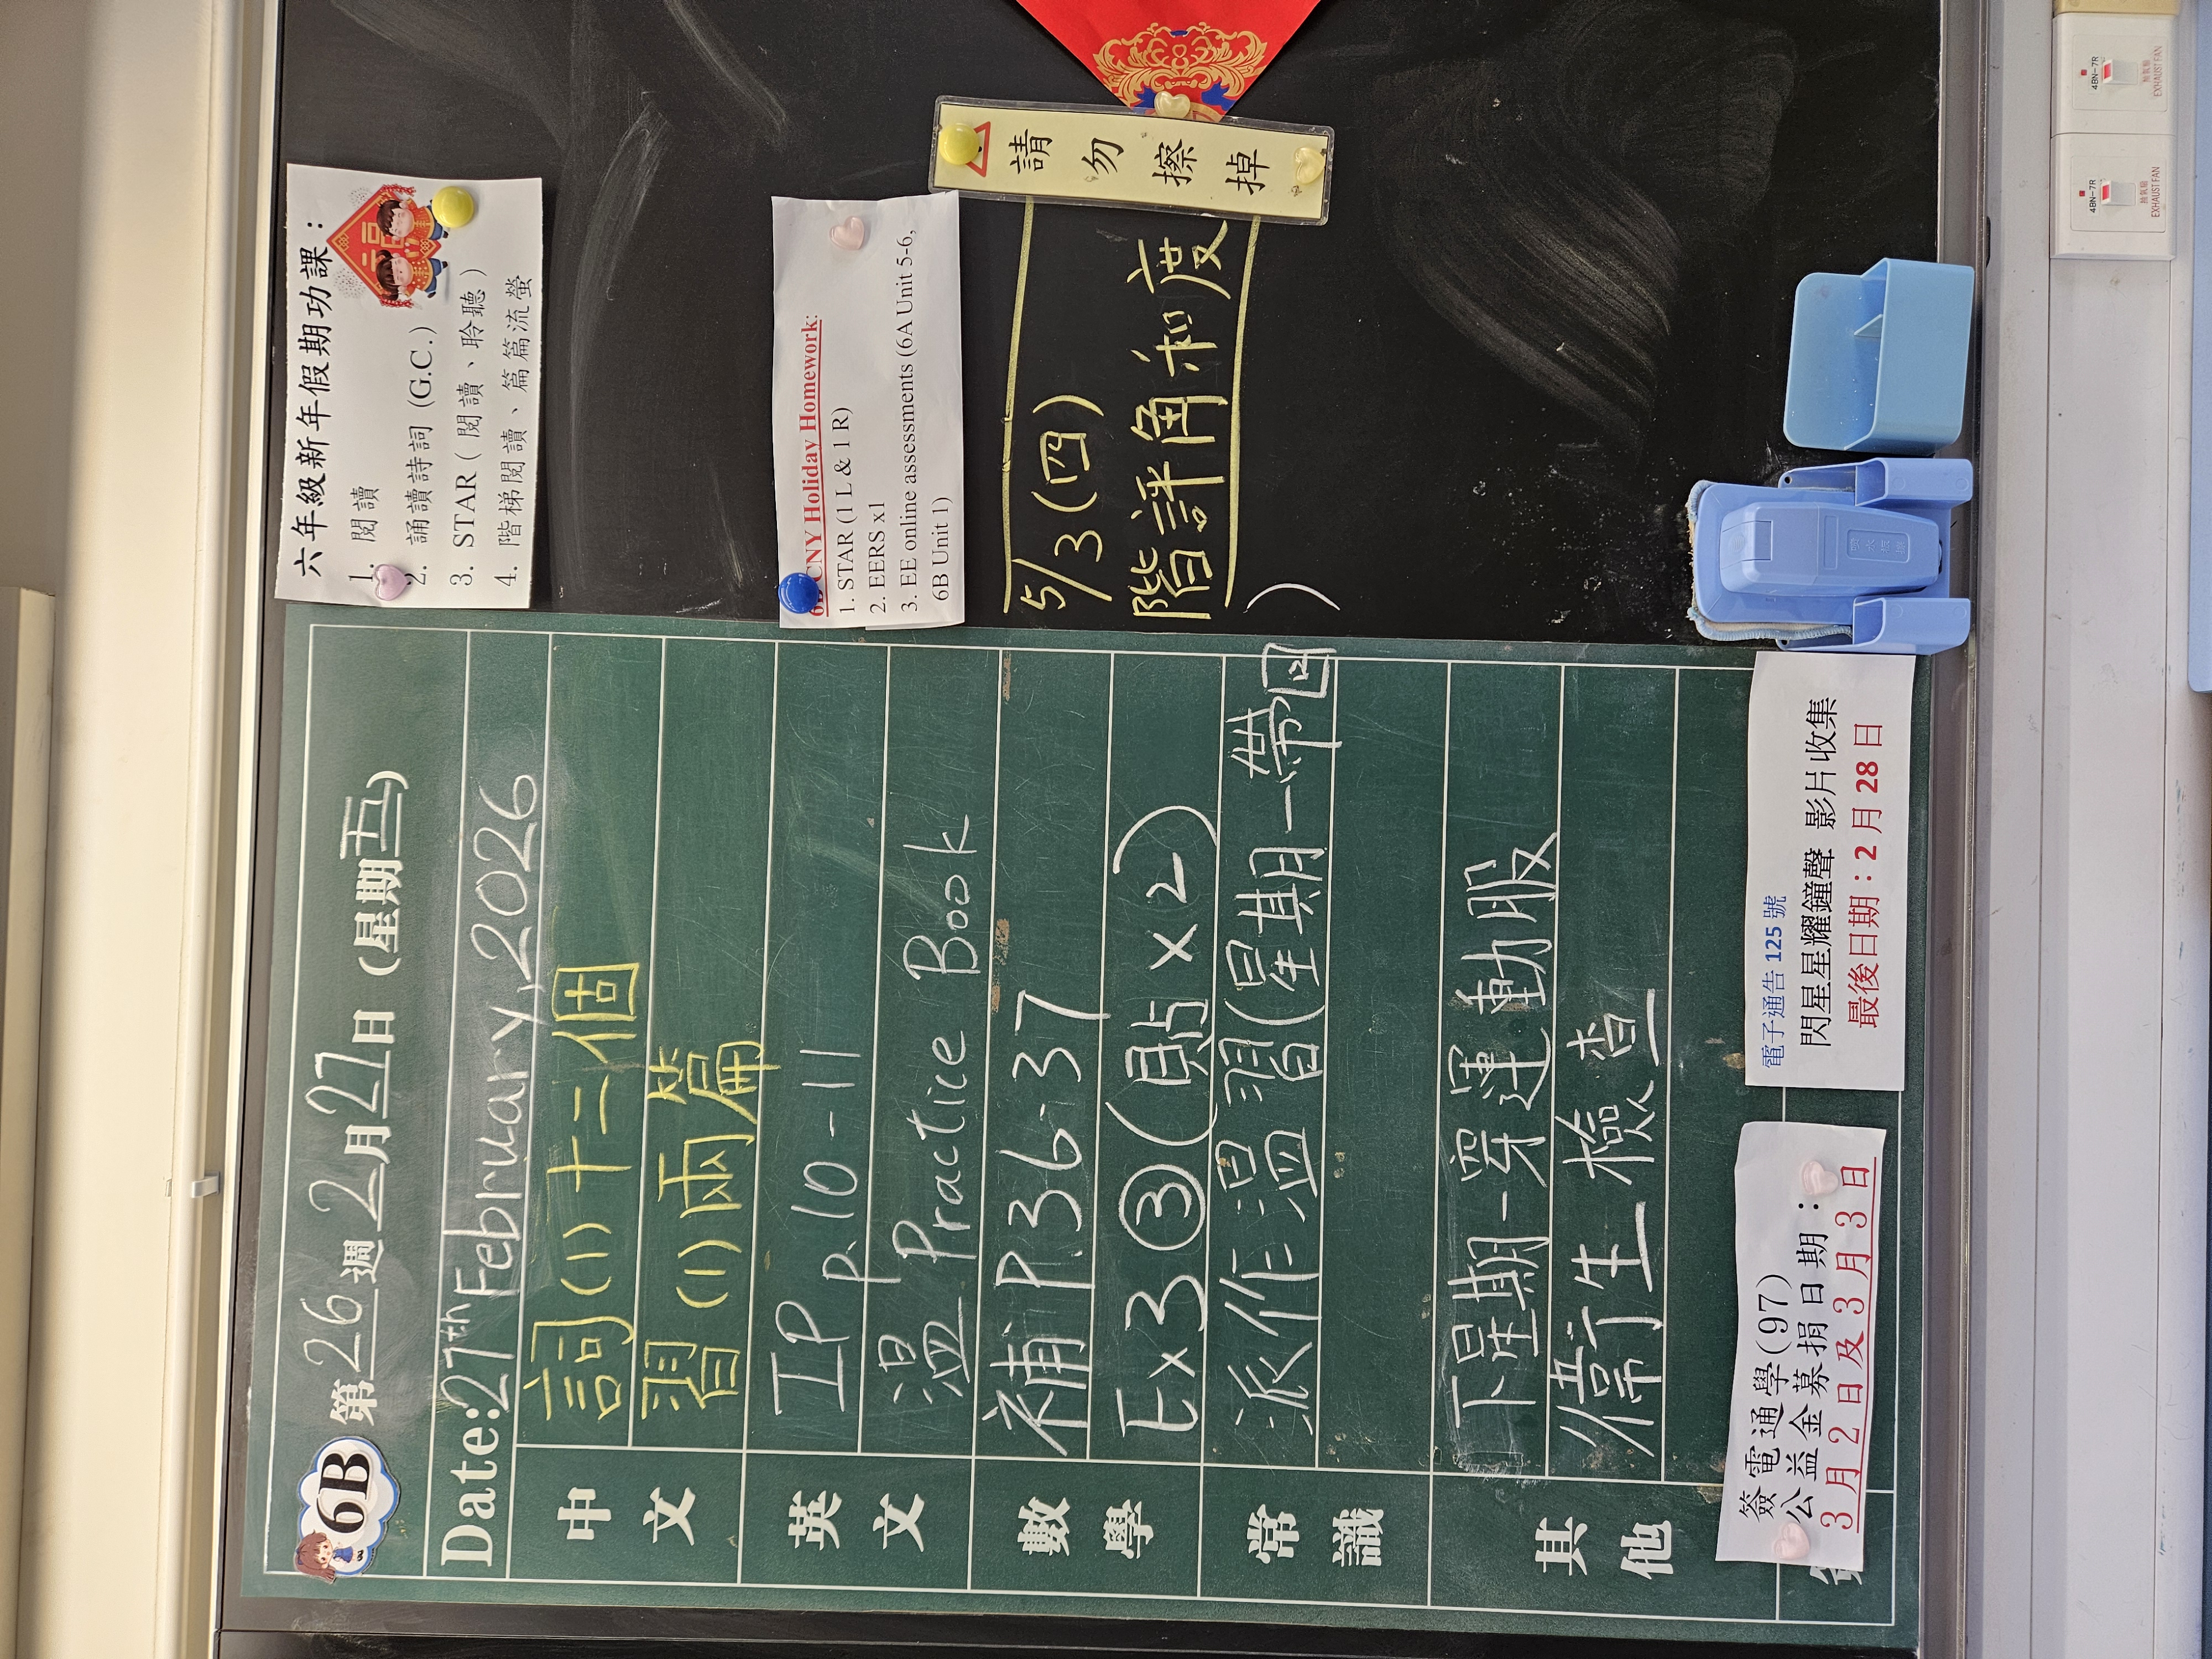 6B 第26週2月27日(星期五)
Date:27th February,2026
中文
詞(1)十二個
習(1)兩篇
英文
IP P.10-11
溫 Practice Book
數學
補P36-37
Ex3③(貼x2)
常識
派作溫習(星期一帶回)
其他
下星期一穿運動服
衛生檢查
簽電通學(97)
公益金募捐日期：
3月2日及3月3日
電子通告 125 號
閃星星耀鐘聲 影片收集
最後日期：2月28日
六年級新年假期功課：
1. 閱讀
2. 誦讀詩詞 (G.C.)
3. STAR ( 閱讀、聆聽 )
4. 階梯閱讀、篇篇流螢
CNY Holiday Homework:
1. STAR (1 L & 1 R)
2. EERS x1
3. EE online assessments (6A Unit 5-6,
6B Unit 1)
5/3(四)
階評角和度
請勿擦掉
4BN-7R
抽氣扇
EXHAUST FAN
4BN-7R
抽氣扇
EXHAUST FAN